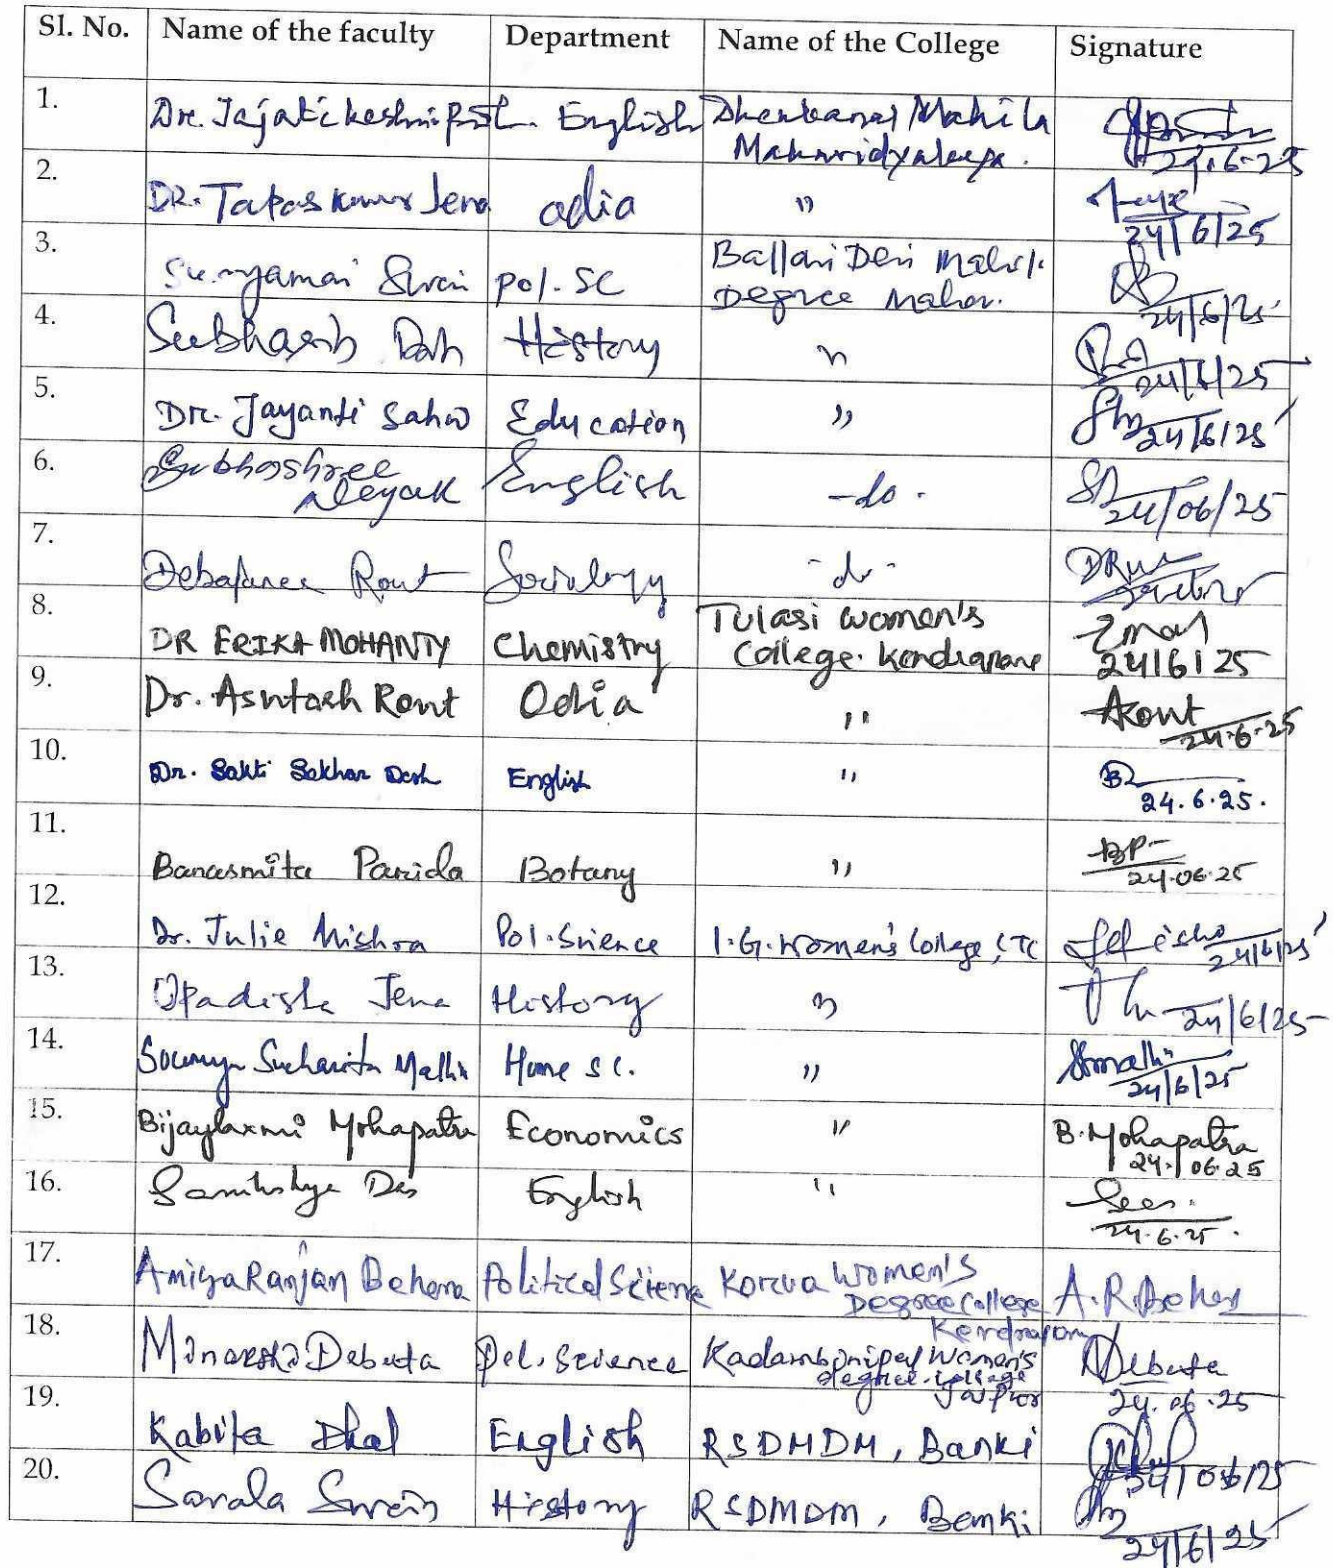 Sl. No. Name of the faculty Department Name of the College Signature
1. Dr. Jajati keshari English Dhenkanal Mahila
Mahavidyalaya. 24.6.25
2. DR. Tapas Kumar Jena odia " 24/6/25
3. Swain Pol. SC Ballavi Devi Mahil.
Degree Mahav. 24/6/25
4. Subhasis Dash History " 24/6/25
5. Dr. Jayanti Sahoo Education " 24/6/25
6. Subhashree
Nayak English -do- 24/06/25
7. Rout Sociology -do-
8. DR ERIKA MOHANTY Chemistry Tulasi women's
College. Kendrapara 24/6/25
9. Dr. Asutosh Rout Odia " ARout 24.6.25
10. Dr. Sakti Sekhar Dash English " 24.6.25.
11. Banasmita Parida Botany " BP 24.06.25
12. Dr. Julie Mishra Pol. Science I.G. Women's College, CTC 24/6/25
13. Upadista Jena History " 24/6/25
14. Soumya Sucharita Mallik Home Sc. " 24/6/25
15. Bijaylaxmi Mohapatra Economics " B. Mohapatra
24.06.25
16. Das English " 24.6.25.
17. Amiya Ranjan Behera Political Science Korua Women's
Degree College A.R. Behera
Kendrapara
18. Debata Pol. Science Women's
degree college Debata
Jajpur 24.06.25
19. Kabita Dhal English RSDMDM, Banki 24/06/25
20. Sarala Swain History RSDMDM, Banki 24/6/25